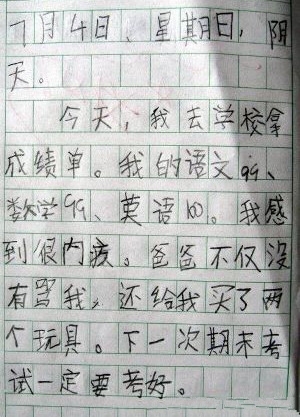 7月4日、星期日,阴
天。
今天,我去学校拿
成绩单。我的语文99、
数学99、英语100。我感
到很内疚。爸爸不仅没
有骂我,还给我买了两
个玩具。下一次期末考
试一定要考好。